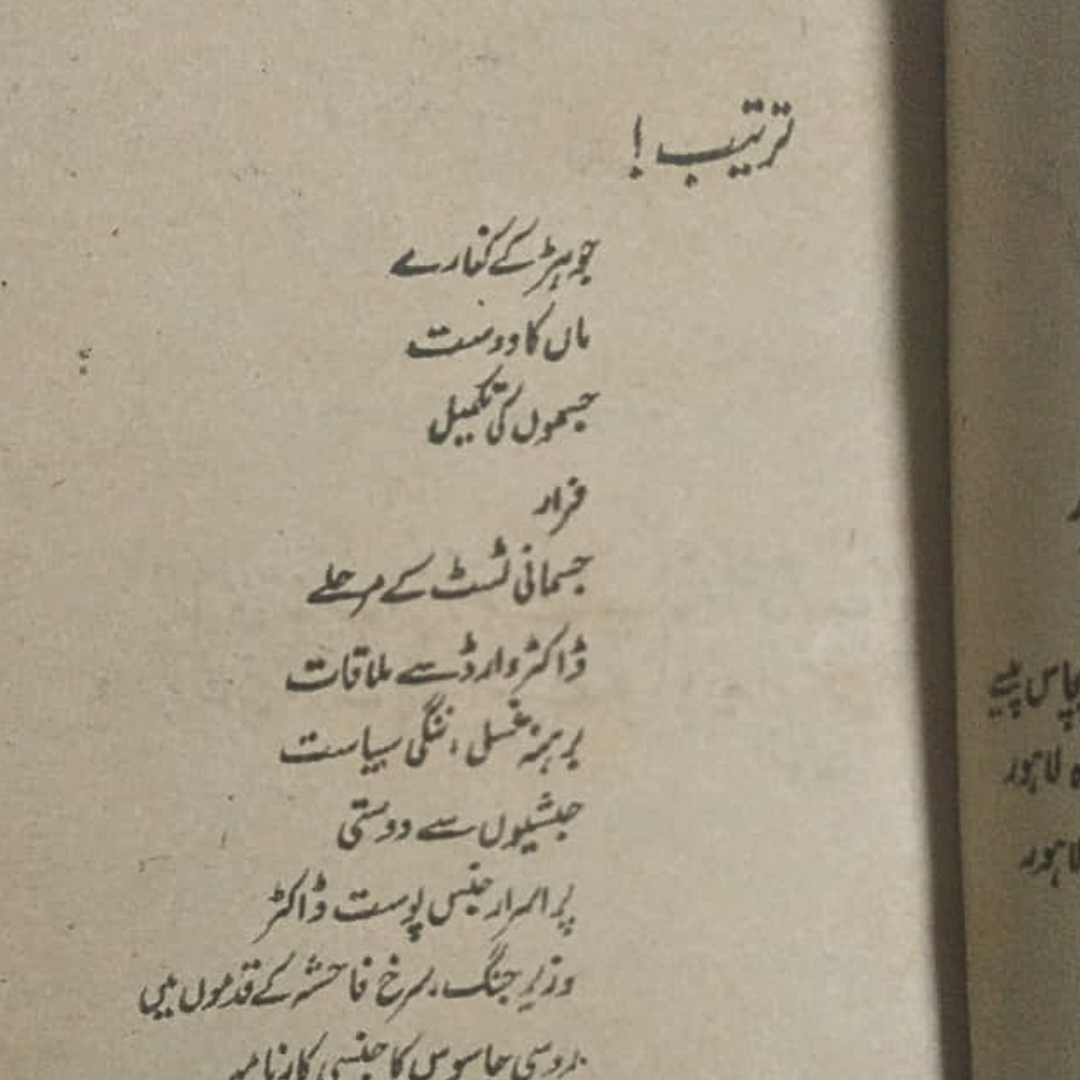 ترتیب !
جوہڑ کے کنارے
ماں کا دوست
جسموں کی تکمیل
فرار
جسمانی ٹسٹ کے مرحلے
ڈاکٹر وارڈ سے ملاقات
برہنہ غسل ، ننگی سیاست
حبشیوں سے دوستی
پر اسرار جنس پوست ڈاکٹر
وزیر جنگ، سرخ فاحشہ کے قدموں میں
روسی جاسوس کا جنسی کارنامہ
پچاس پیسے
لاہور
لاہور